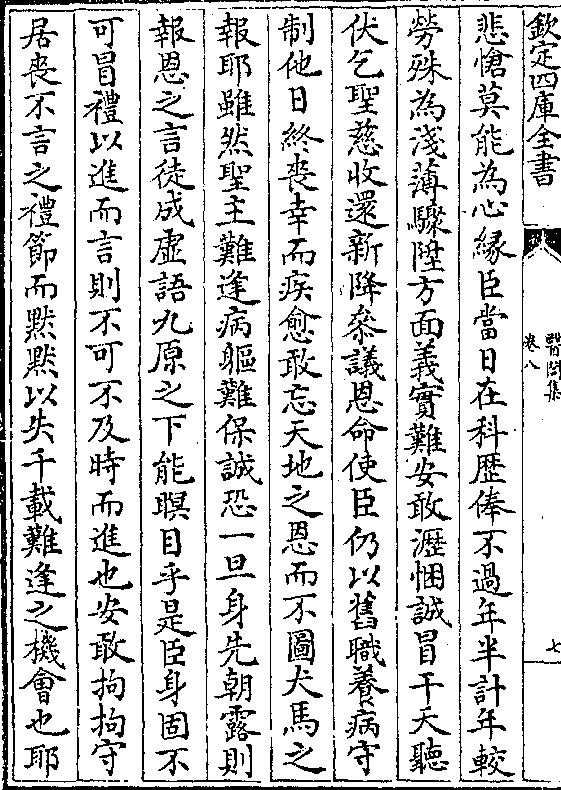 欽定四庫全書
醫閭集
卷八
七
悲愴莫能為心緣臣當日在科歷俸不過年半計年較
勞殊為淺薄驟陞方面義實難安敢瀝悃誠冒干天聽
伏乞聖慈收還新降叅議恩命使臣仍以舊職養病守
制他日終喪幸而疾愈敢忘天地之恩而不圖犬馬之
報耶雖然聖主難逢病軀難保誠恐一旦身先朝露則
報恩之言徒成虛語九原之下能瞑目乎是臣身固不
可冒禮以進而言則不可不及時而進也安敢拘拘守
居喪不言之禮節而默默以失千載難逢之機會也耶